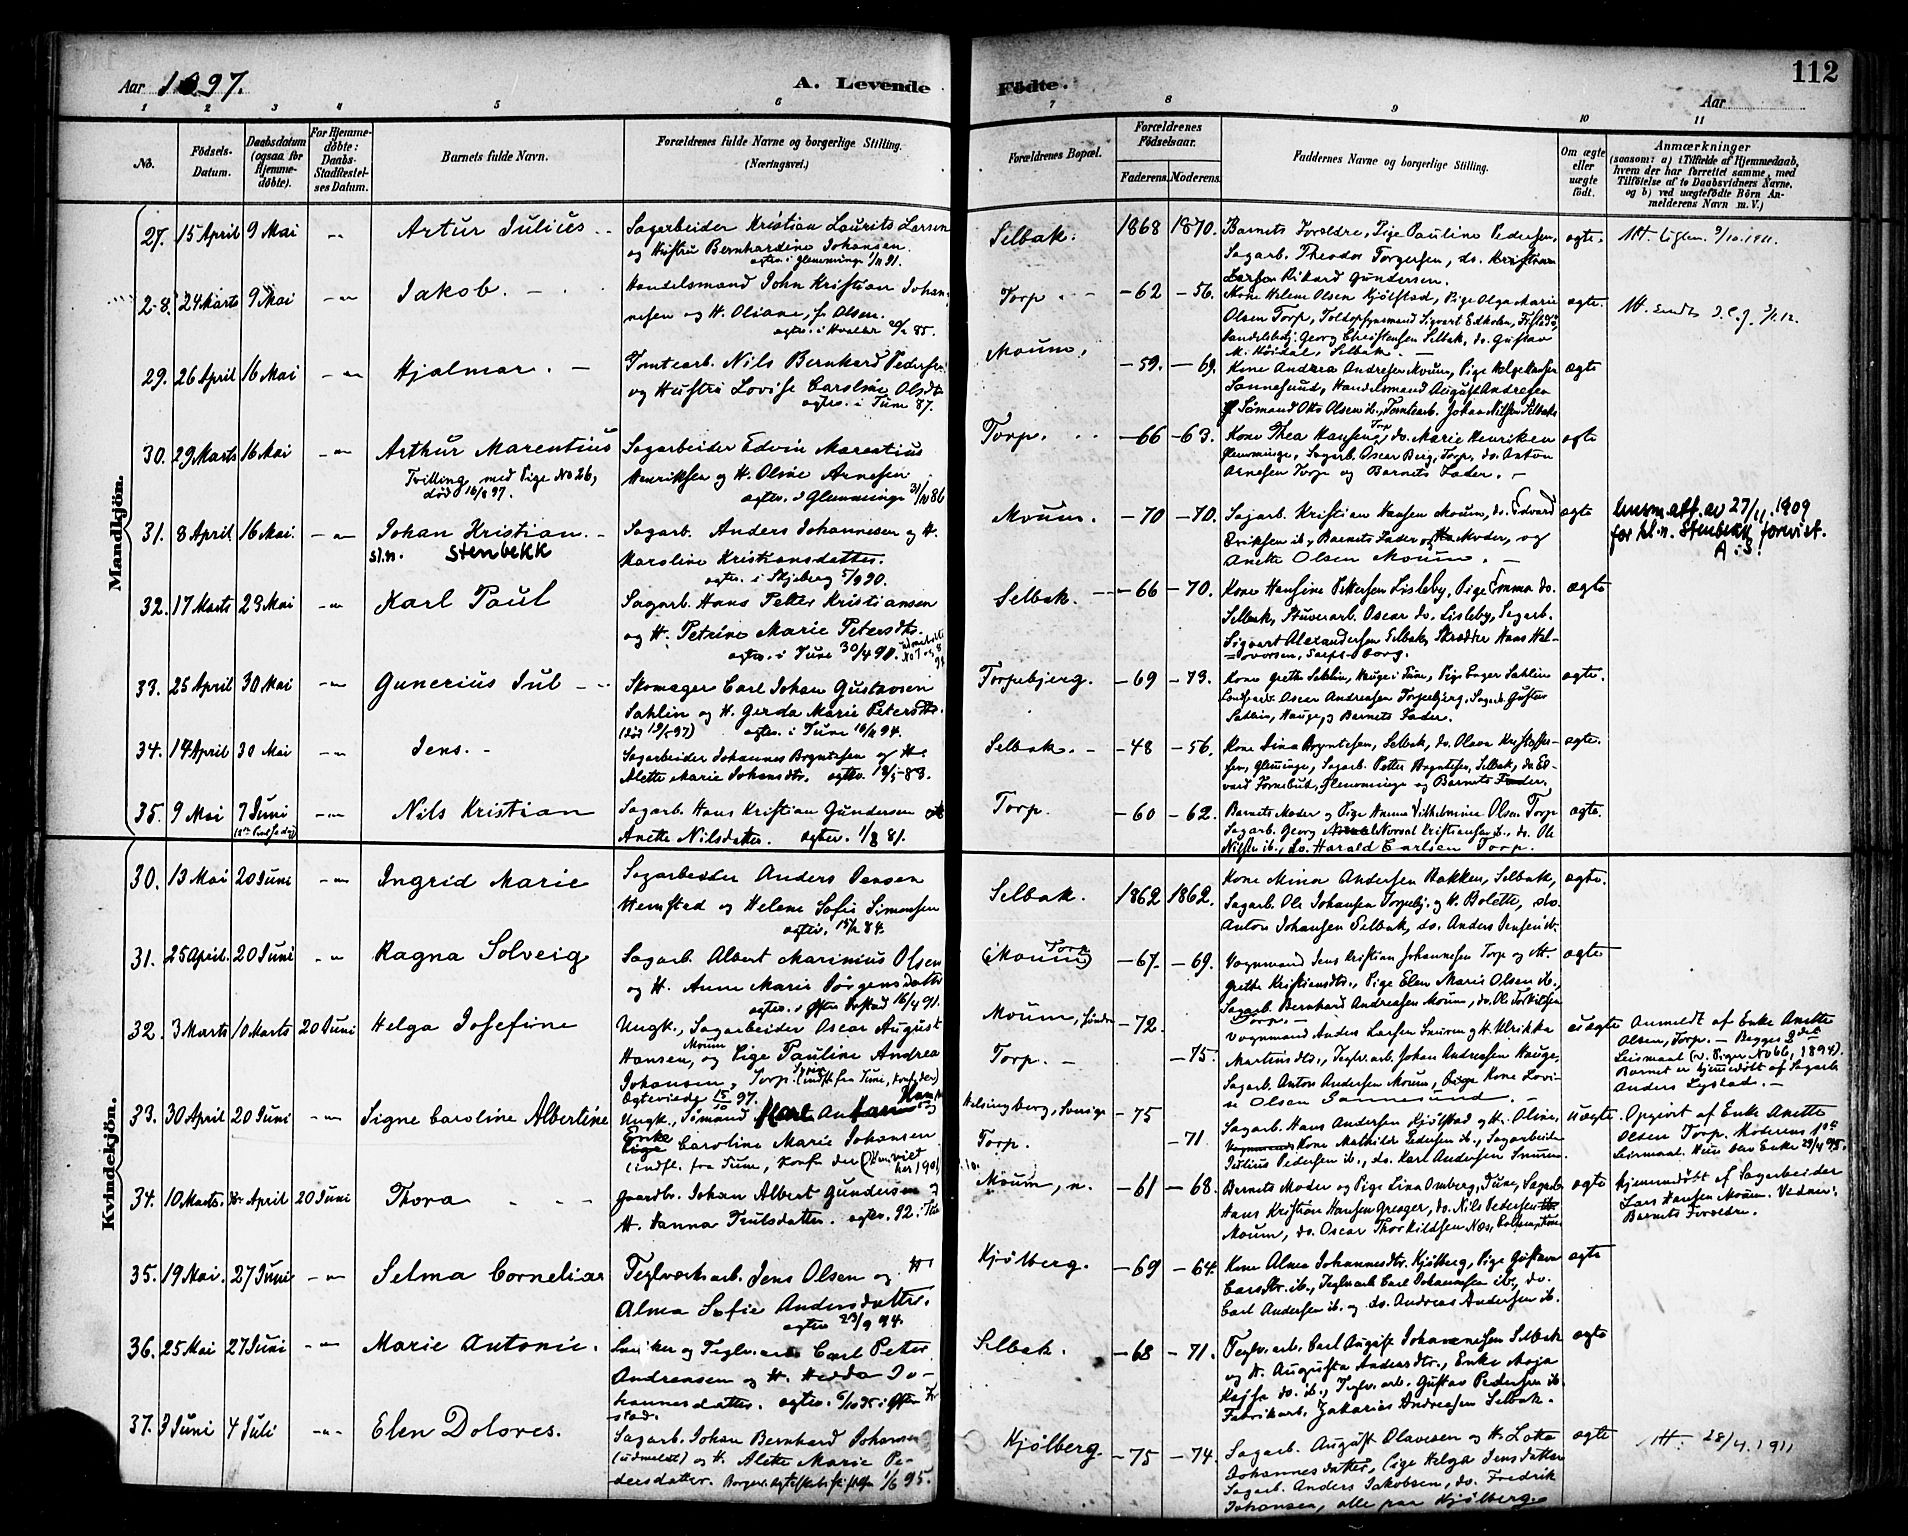 Aar 1897.
A. Levende
Fødte.
112
Aar
1 2 3 4 5 6 7 8 9 10 11
No.
Fødsels-
Datum.
Daabsdatum
(ogsaa for
Hjemme-
døbte).
For Hjemme-
døbte:
Daabs-
Stadfæstel-
ses Datum.
Barnets fulde Navn.
Forældrenes fulde Navne og borgerlige Stilling.
(Næringsvei.)
Forældrenes Bopæl.
Forældrenes
Fødselsaar.
Faderens. Moderens.
Faddernes Navne og borgerlige Stilling.
Om ægte
eller
uægte
født.
Anmærkninger
(saasom: a) i Tilfælde af Hjemmedaab,
hvem der har forrettet samme, med
Tilføielse af to Daabsvidners Navne,
og b) ved uægtefødte Børn An-
melderens Navn m. V.)
Mandkjön.
27. 15 April 9 Mai -"- Artur Julius
Sagarbeider Kristian Laurits Larsen
og Hustru Bernhardine Johansen.
agtev. i Glemminge 1/11 91.
Selbak. 1868 1870.
Barnets Forældre, Pige Pauline Pedersen,
Sagarb. Theodor Torgersen, do. Kristian
Larsen Rikard Gundersen.
ægte.
28. 24 Marts 9 Mai -"- Jakob.
Handelsmand John Kristian Johan-
nesen og H. Oliane, f. Olsen.
agtev. i Hvaler
Torp. -62 -56.
Kone Helene Olsen Kjølstad, Pige Olga Marie
Olsen Torp, Toldopsynsmand Sigvart Edholm,
Handelsbetj. Georg Christensen Selbak, do. Gustav
M. Høidal, Selbak.
ægte.
29. 26 April 16 Mai -"- Hjalmar.
Tomtearb. Nils Bernhard Pedersen
og Hustru Lovise Caroline Olsdt.
agtev. i Tune 87.
Moum. -59. -69.
Kone Andrea Andresen Moum, Pige Helga Hansen
Sannesund, Handelsmand August Andresen
Sømand Otto Olsen ib., Tomtearb. Johan Nilsen Selbak
ægte
30. 29 Marts 16 Mai -"- Arthur Marentius
Tvilling med Pige No 26,
død 16/8 97.
Sagarbeider Edvin Marentius
Henriksen og H. Oline Arnesen
agtev. i Glemminge 31/10 86
Torp. -66 -63.
Kone Thea Hansen Torp, do. Marie Henriksen
Glemminge, Sagarb. Oscar Berg, Torp, do. Anton
Arnesen Torp og Barnets Fader.
ægte
31. 8 April 16 Mai -"- Johan Kristian.
sl.n. Stenbekk
Sagarb. Anders Johannesen og H.
Karoline Kristiansdatter.
agtev. i Skjeberg 5/9 90.
Moum. -70 -70.
Sagarb. Kristian Hansen Moum, do. Edvard
Eriksen ib., Barnets Fader og Moder, og
Anette Olsen Moum.
ægte
av 27/11.1909
for sl.n. Stenbekk
A.S.
32. 17 Marts 23 Mai -"- Karl Paul
Sagarb. Hans Petter Kristiansen
og H. Petrine Marie Petersdtr.
agtev. i Tune 30/4 90.
Selbak. -66 -70.
Kone Hansine Pettersen Lisleby, Pige Emma do.
Selbak, Stuverarb. Oscar do. Lisleby, Sagarb.
Sigvart Alexandersen Selbak, Skrædder Hans Hal-
vorsen, Sarpsborg.
ægte
33. 25 April 30 Mai -"- Gunerius Jul
Skomager Carl Johan Gustavsen
Sahlin og H. Gerda Marie Petersdtr.
agtev. i Tune 94.
Torpebjerg. -69 -73.
Kone Grethe Sahlin, Hauge i Tune, Pige Inger Sahlin
Oscar Andreasen Torpebjerg, Sagarb. Gustav
Sahlin, Hauge, og Barnets Fader.
ægte.
34. 14 April 30 Mai -"- Jens.
Sagarbeider Johannes Bryntesen og H.
Alette Marie Johansdtr. agtev. 83.
Selbak. -48 -56.
Kone Lina Bryntesen, Selbak, do. Olava Kristoffer-
sen, Glemminge, Sagarb. Petter Bryntesen, Selbak, do. Ed-
vard Glemminge og Barnets Fader.
ægte.
35. 9 Mai 7 Juni -"- Nils Kristian
Sagarb. Hans Kristian Gundersen og
Anette Nilsdatter. agtev. 1/8 81.
Torp. -60 -62.
Barnets Moder og Pige Hanna Vilhelmine Olsen Torp
Sagarb. Georg Norval Kristiansen ib., do. Ole
Nilsen ib., do. Harald Carlsen Torp.
ægte.
Kvindekjön.
30. 13 Mai 20 Juni -"- Ingrid Marie
Sagarbeider Anders Jensen
Hemstad og Helene Sofie Simensen
agtev. 84.
Selbak. 1862 1862.
Kone Mina Andersen Bakken, Selbak,
Sagarb. Ole Johansen Torpebj. og H. Bolette, do.
Anton Johansen Selbak, do. Anders Jensen ib.
ægte.
31. 25 April. 20 Juni -"- Ragna Solveig
Sagarb. Albert Marinius Olsen
og H. Anne Marie Jørgensdatter
agtev. i 16/4 91.
(Moum) Torp -67. -69.
Vognmand Jens Kristian Johannesen Torp og H.
Grethe Kristiansdtr., Pige Elen Marie Olsen ib.,
Sagarb. Bernhard Andreasen Moum, do. Ole Torkildsen
Torp.
ægte
32. 3 Marts 10 Marts 20 Juni Helga Josefine
Ungk., Sagarbeider Oscar August
Hansen, Moum og Pige Pauline Andrea
Johansen, Torp. (indfl. fra Tune, Konf. der)
Egteviede 15/10 97.
Moum, søndre -72.
Torp. -75.
Vognmand Anders Larsen Snuren og H. Ulrikka
Martinsdtr., Teglv.arb. Johan Andreasen Hauge,
Sagarb. Anton Andersen Moum, Kone Lovi-
se Olsen Sannesund.
uægte
Anmeldt af Enke Anette
Olsen, Torp. - Begges 2det
Leiermaal (v. Piger No 66, 1894).
Barnet er hjemmedøbt af Sagarb.
Anders Lystad.
33. 30 April 20 Juni -"- Signe Caroline Albertine
Ungk., Sømand Karl
Enke Caroline Marie Johansen
(indfl. fra Tune, Konf. der)
Helsingborg, Sverige -75
Torp. -71
Sagarb. Hans Andersen Kjølstad og H. Oline,
Kone Mathilde Pedersen ib., Sagarbeider
Julius Pedersen ib., do. Karl Andersen Snuren.
uægte.
Opgivet af Enke Anette
Olsen Torp. Moderens 1ste
Leiermaal. Hun blev Enke 29/4 95.
34. 10 Marts. April 20 Juni Thora
Gaardbr. Johan Albert Gundersen og
H. Hanna Trulsdatter. agtev. 92. i Tune
Moum, n. -61 -68.
Barnets Moder og Pige Lina Omberg, Tune, Sagarb.
Hans Kristian Hansen Greager, do. Nils Pedersen
Moum, do. Oscar Thorkildsen
ægte
Hjemmedøbt af Sagarbeider
Lars Hansen Moum. Vidner:
Barnets Forældre.
35. 19 Mai. 27 Juni -"- Selma Cornelia
Teglværksarb. Jens Olsen og H.
Alma Sofie Andersdatter.
agtev. 23/9 94.
Kjølberg. -69 -64.
Kone Alma Johannesdtr. Kjølberg, Pige Gustava
Larsdtr. ib., Teglv.arb. Carl Johannesen ib., do.
Carl Andersen ib. og do. Andreas Andersen ib.
ægte
36. 25 Mai 27 Juni -"- Marie Antonie.
Snedker og Teglv.arb. Carl Peter
Andreasen og H. Hedda Jo-
hannesdatter. agtev.
Selbak. -68 -71.
Teglv.arb. Carl August Johannesen Selbak
og H. Augusta Andersdtr., Enke Maja
Kajsa do. ib., Teglv.arb. Gustav Pedersen ib.
Fabrikarb. Zakarias Andreasen Selbak.
ægte
37. 3 Juni 4 Juli -"- Elen Dolores.
Sagarb. Johan Bernhard Johansen
(udmeldt) og H. Alette Marie Pe-
dersdatter. Borgerl. Egteskab 1/6 95.
Kjølberg. -75 -74.
Sagarb. August Olavesen og H. Lotta
Johannesdatter, Pige Helga Jensdatter
Sagarb. Anders Jakobsen, do. Fredrik
Johansen, alle paa Kjølberg.
ægte
Att. 28/4.1911